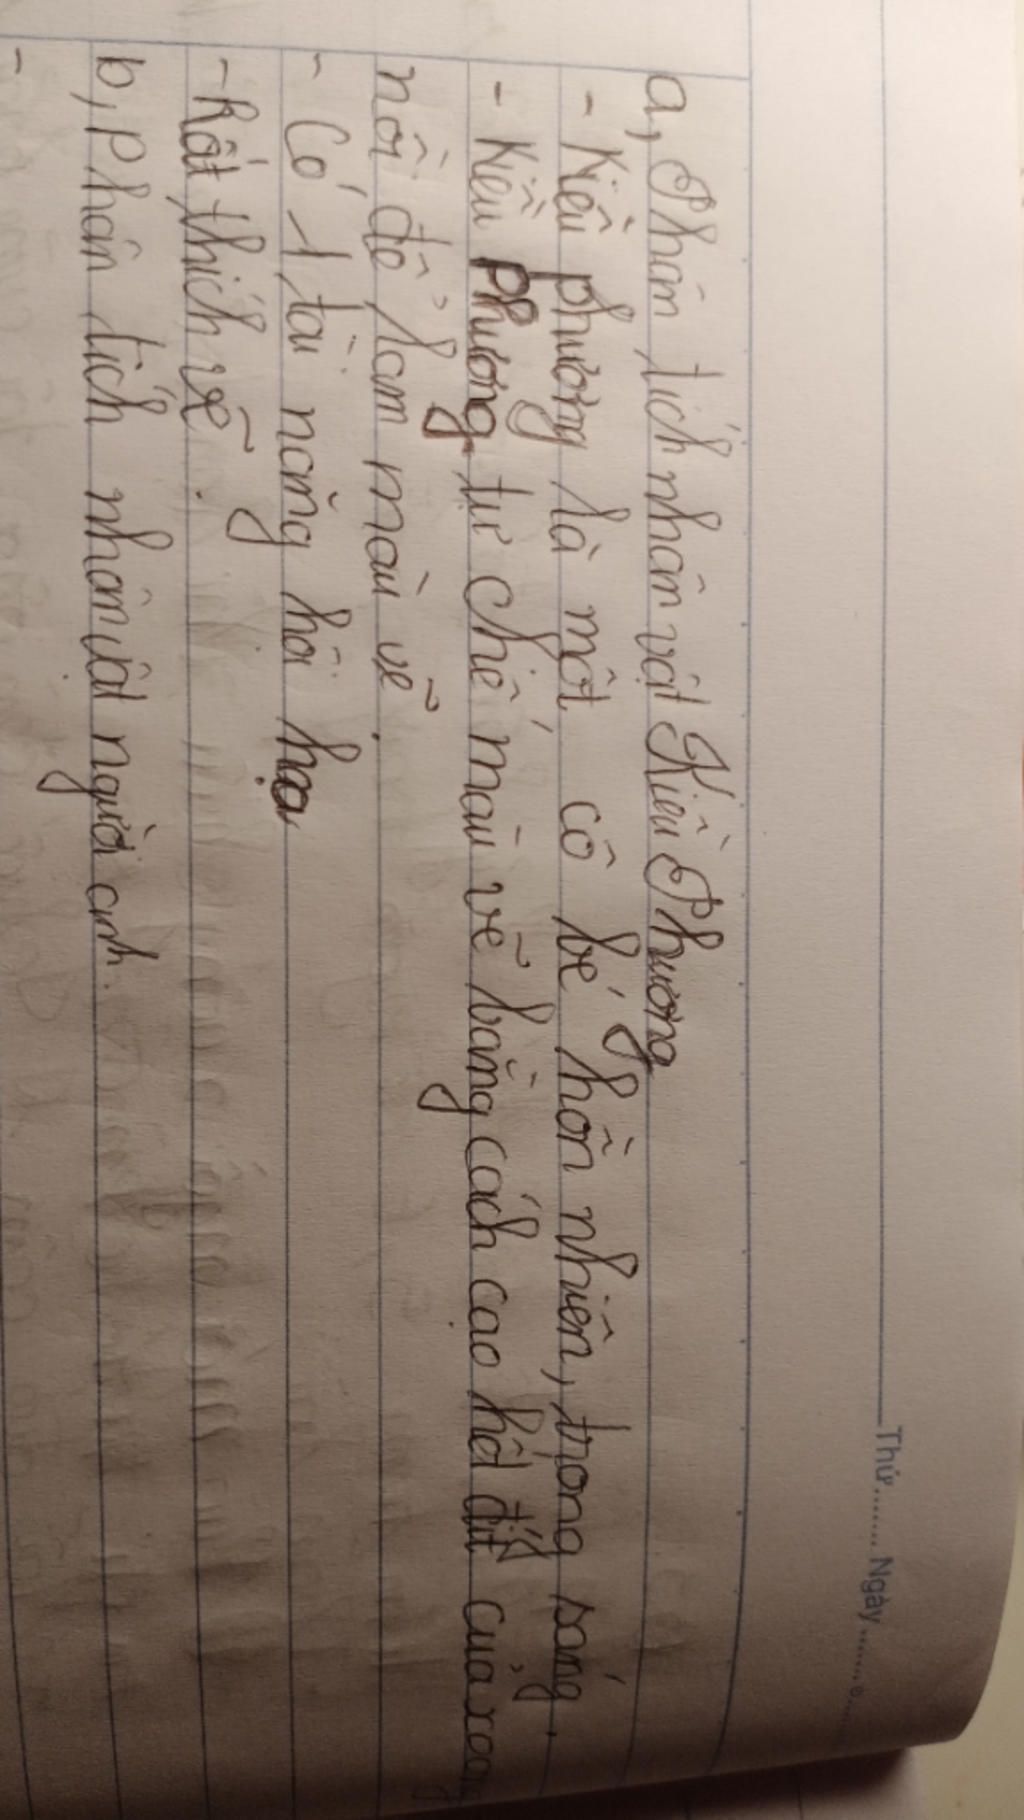 Thứ....... Ngày.......
a, Phân tích nhân vật Kiều Phương
- Kiều phương là một cô bé hồn nhiên, trong sáng.
- Kiều Phương tự chế màu vẽ bằng cách cạo hết đít của xoong
nồi để làm màu vẽ.
- Có 1 tài năng hội họa
- Rất thích vẽ.
b, Phân tích nhân vật người anh.
-